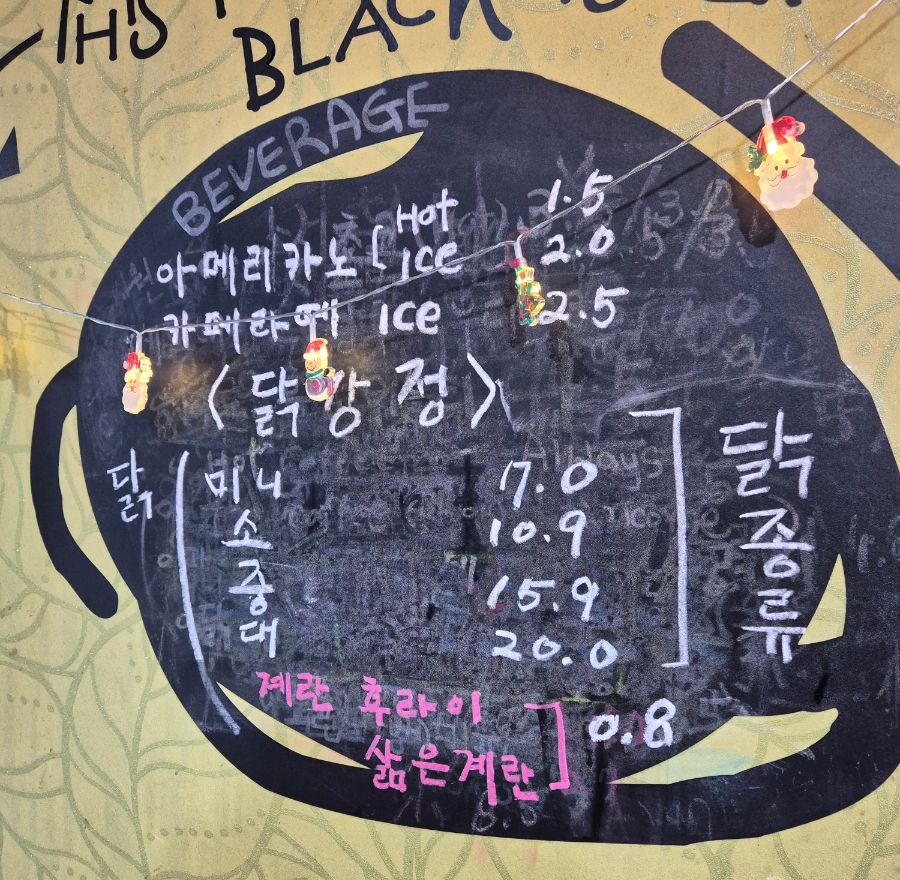 THIS
BLACK
BEVERAGE
아메리카노 [ Hot 1.5
ICE 2.0
카페라떼 ICE 2.5
< 닭강정 >
닭 ( 미니 7.0 ] 닭종류
소 10.9
중 15.9
대 20.0
계란 후라이 ] 0.8
삶은계란